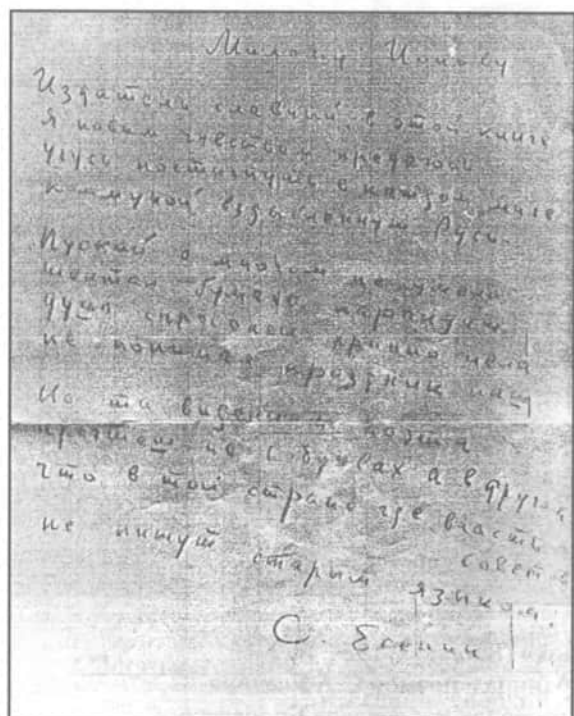 Милому Ионову
Издатель славный, в этой книге
я новым чувствам предаюсь
учусь постигнуть в каждом миге
коммуной вздыбленную Русь.
Пускай о многом неумело
шептал бумаге карандаш
душа спросонок хрипло пела
не понимая праздник наш
Но ты видением поэта
прочтешь не в буквах а в другом
что в той стране где власть
советов
не пишут старым языком.
С. Есенин